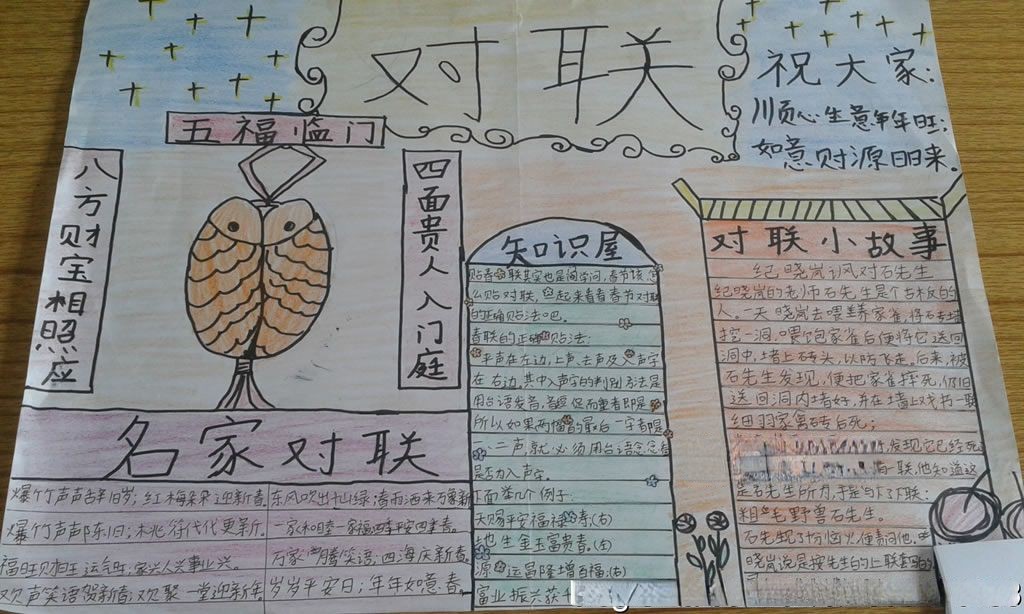 对联
祝大家：
川页心生意年年旺；
如意财源日日来。
五福临门
八方财宝相照应
四面贵人入门庭
名家对联
爆竹声声辞旧岁；红梅朵朵迎新春
爆竹声声除旧；桃符代代更新
福旺财旺运气旺；家兴人兴事业兴。
欢声笑语贺新春；欢聚一堂迎新年
东风吹出千山绿；春雨洒来万象新
一家和睦一家福；四季平安四季春。
万家腾笑语；四海庆新春
岁岁平安日；年年如意春
知识屋
贴春联其实也是门学问，春节该怎
么贴对联，一起来看看春节对联
的正确贴法吧。
春联的正确贴法：
平声在左边，上声、去声及入声字
在右边，其中入声字的判别方法是
用台语发音，音短促而重者即是
所以如果两幅的最后一字都是
一、二声，就必须用台语念念看
是否为入声字。
下面举几个例子：
天赐平安福禄寿（右）
地生金玉富贵春。（左）
源 运昌隆增百福；（右）
富业振兴获千
对联小故事
纪晓岚讽对石先生
纪晓岚的老师石先生是个古板的
人。一天晓岚去喂养家雀，将石砖墙
挖一洞，喂饱家雀后便将它送回
洞中，堵上砖头，以防飞走，后来，被
石先生发现，便把家雀摔死，仍旧
送回洞内堵好，并在墙上戏书一联
细羽家禽砖后死；
发现它已经死
一联，他知道这
是石先生所为，于是写了下联：
粗毛野兽石先生。
石先生见了恼火，便责问他，
晓岚说是按先生的上联套的